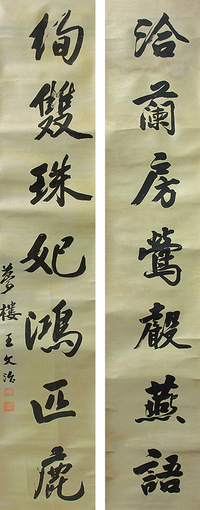 洽蘭房鶯觳燕語
絢雙珠妃鴻匹鹿
夢樓王文治